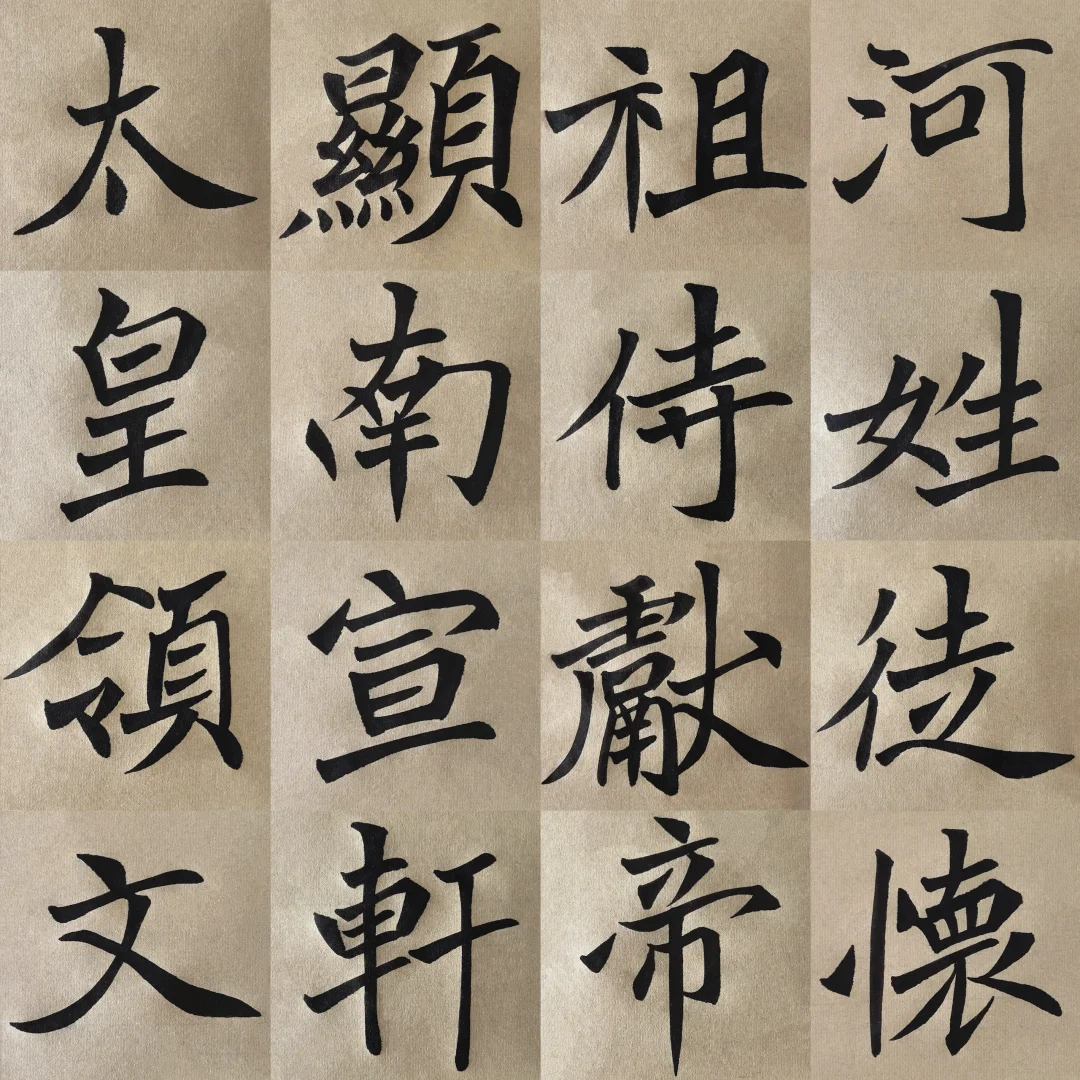 太顯祖河
皇南侍姓
領宣獻徒
文軒帝懷